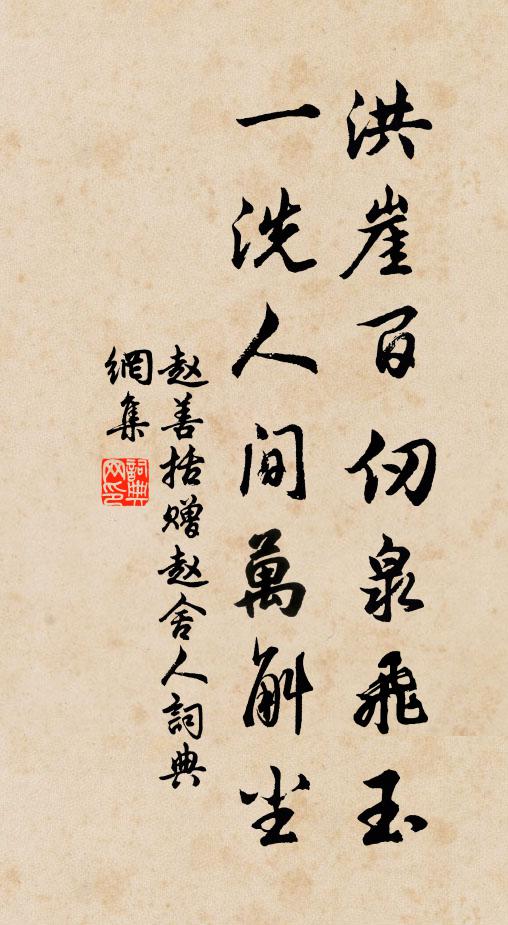 洪崖百仞泉飛玉
一洗人间萬斛尘
赵善括赠赵舍人詞典
網集
詞典网印